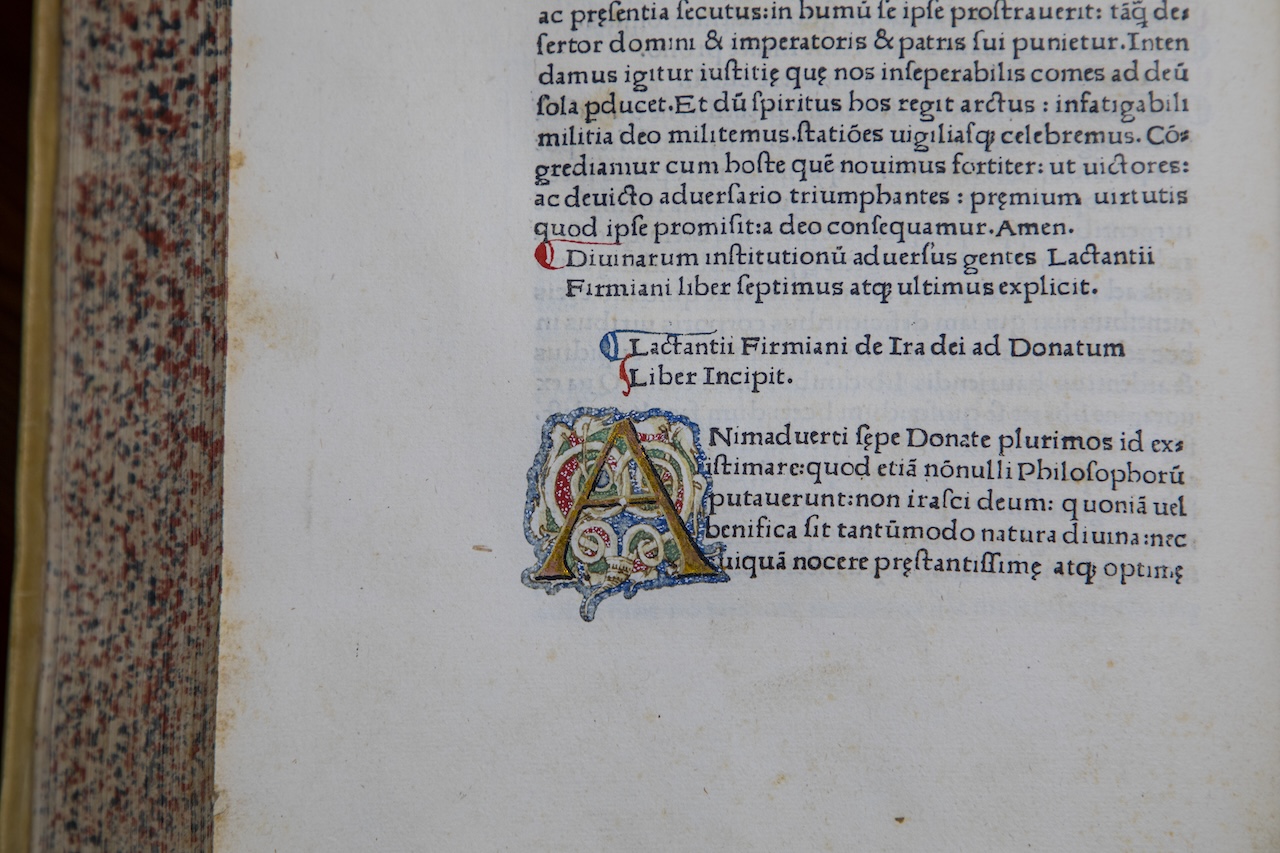 ac pręſentia ſecutus:in humū ſe ipſe proſtrauerit: tāq̃ de⸗
ſertor domini & imperatoris & patris ſui punietur.Inten
damus igitur iuſtitię quę nos inſeperabilis comes ad deū
ſola ꝑducet.Et dū ſpiritus hos regit arctus : infatigabili
militia deo militemus.ſtatiões uigiliaſqꝫ celebremus. Cõ⸗
grediamur cum hoſte quẽ nouimus fortiter: ut uictores:
ac deuicto aduerſario triumphantes : pręmium uirtutis
quod ipſe promiſit:a deo conſequamur.Amen.
Diuinarum inſtitutionū aduerſus gentes Lactantii
Firmiani liber ſeptimus atqꝫ ultimus explicit.
Lactantii Firmiani de Ira dei ad Donatum
Liber Incipit.
ANimaduerti ſępe Donate plurimos id ex⸗
iſtimare:quod etiã nõnulli Philoſophorū
putauerunt:non iraſci deum: quoniã uel
benifica ſit tantūmodo natura diuina:nec
cuiquã nocere pręſtantiſſimę atqꝫ optimę